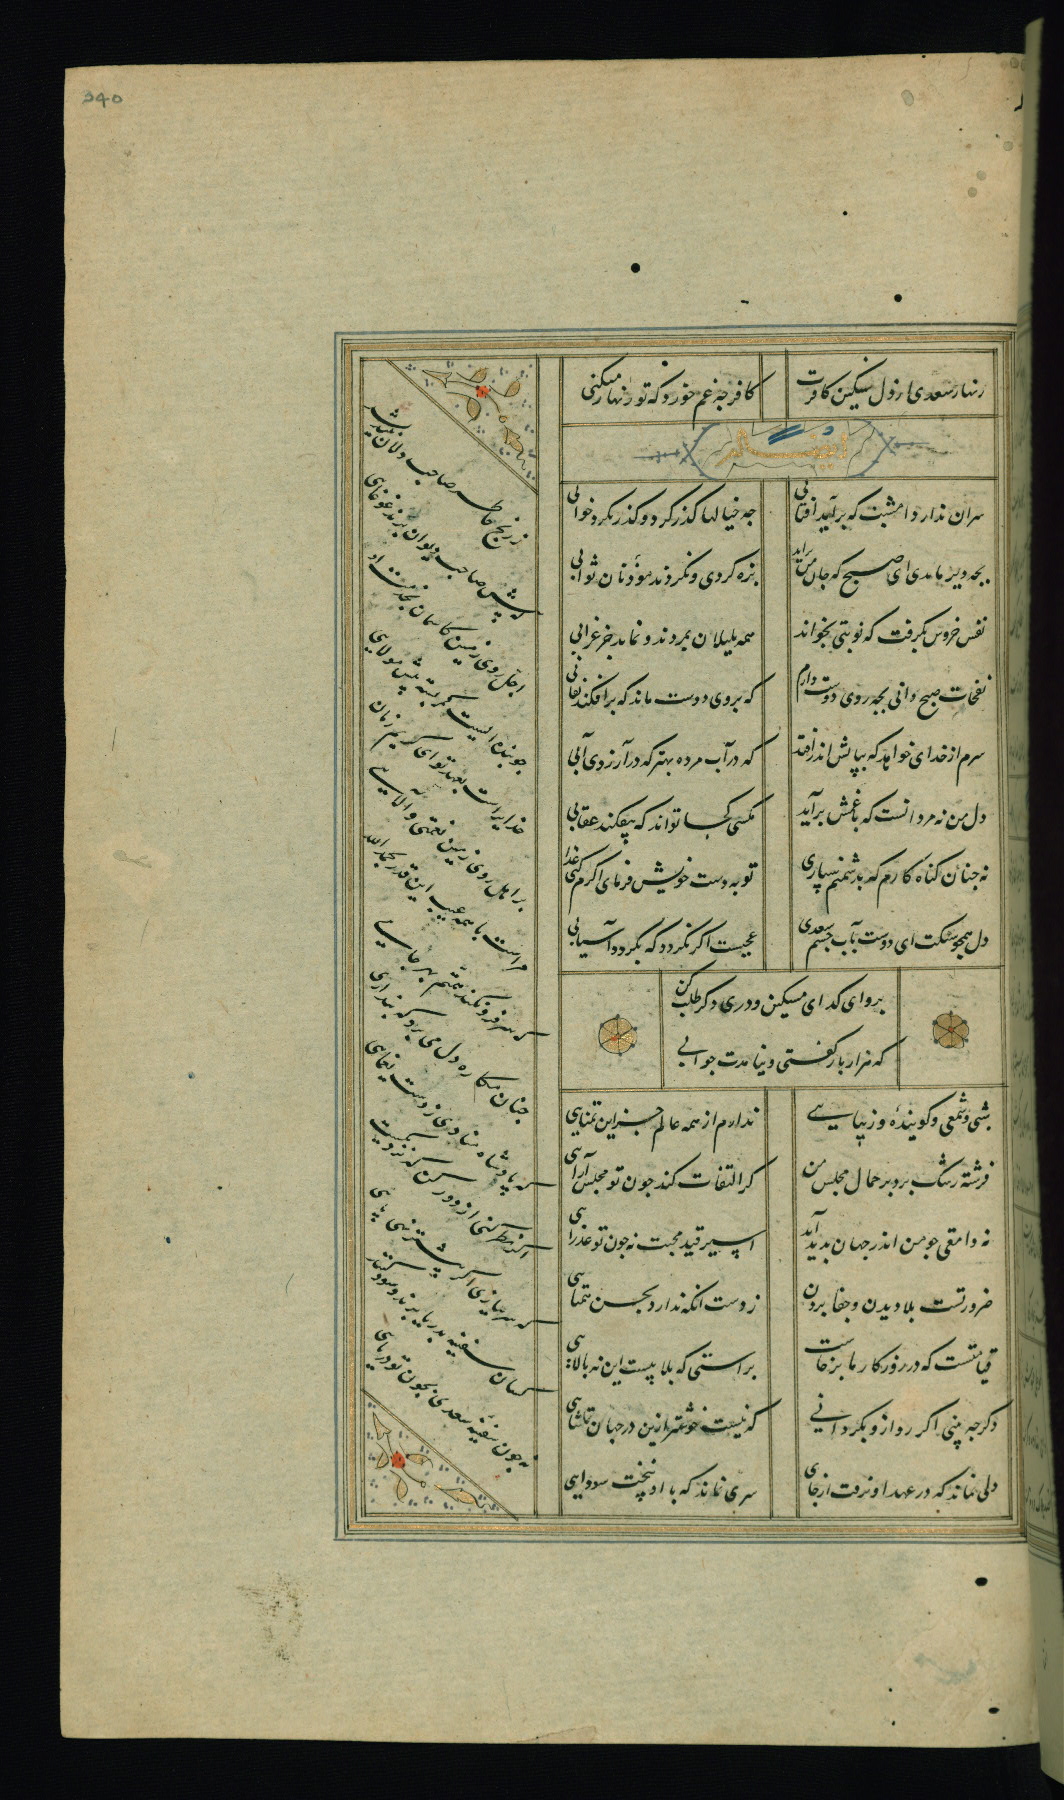 340
زنهار سعدی از دل سنگین کافرت
کافر چه غم خورد که تو زنهار میکنی
ایضا له
سر آن ندارد امشب که برآید آفتابی
چه خیالها گذر کرد و گذر نکرد خوابی
بچه دیر ماندی ای صبح که جان من برآمد
بزه کردی و نکردند مؤذنان ثوابی
نفس خروس بگرفت که نوبتی بخواند
همه بلبلان بمردند و نماند جز غرابی
نفحات صبح دانی بچه روی دوست دارم
که بروی دوست ماند که برافکند نقابی
سرم از خدای خواهد که بپایش اندر افتد
که در آب مرده بهتر که در آرزوی آبی
دل من نه مرد آنست که با غمش برآید
مگسی کجا تواند که بیفکند عقابی
نه چنان گناه کارم که بدشمنم سپاری
تو بدست خویش فرمای اگرم کنی عذابی
دل همچو سنگت ای دوست بآب چشم سعدی
عجبست اگر نگردد که بگردد آسیابی
برو ای گدای مسکین و دری دگر طلب کن
که هزار بار گفتی و نیامدت جوابی
شبی و شمعی و گوینده و زیبایی
ندارم از همه عالم جز این تمنایی
فرشته رشک برد بر جمال مجلس من
گر التفات کند چون تو مجلس آرایی
نه وامقی چو من اندر جهان بدید آید
اسیر قید محبت نه چون تو عذرایی
ضرورتست بلا دیدن و جفا بردن
ز دست آنکه ندارد بحسن همتایی
قیامتست که در روزگار ما برخاست
براستی که بلاییست این نه بالایی
دگر چه بینی اگر رو ازو بگردانی
که نیست خوشتر ازین در جهان تماشایی
دلی نماند که در عهد او نرفت از جای
سری نماند که با او نپخت سودایی
ز رنج خاطر صاحب دلان نیندیشد
که پیش صاحب دیوان برند غوغایی
اجل روی زمین کاسمان بخدمت او
چو بنده ایست کمر بسته پیش مولایی
خدایراست بعهد تو ای کریم زمان
بر اهل روی زمین نعمتی و آلایی
مراست با همه عیب این قدر بحمد الله
که سر فرو نکند همتم بهر جایی
چنان مکابره دل می برد که پنداری
که پادشاه منادی زدست یغمایی
که سر نبازی اگر پیشتر نهی پایی
کسان سفینه بدریا برند و سود کنند
نه چون سفینه سعدی نه چون تو دریایی